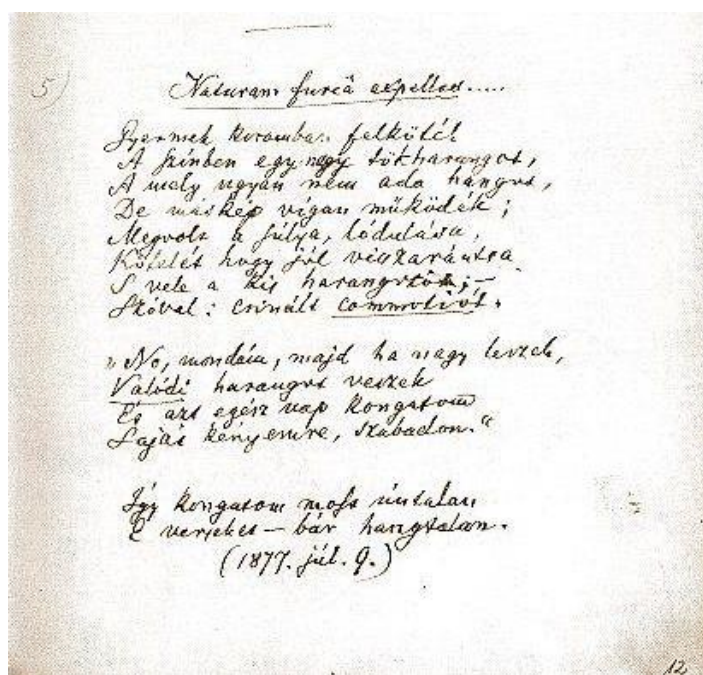 5)
Naturam furcâ expellas.....
Gyermek koromban felköték
A színben egy nagy tökharangot,
A mely ugyan nem ada hangot,
De máskép vígan működék;
Megvolt a súlya, lódulása,
Kötelét hogy jól visszarántsa
S vele a kis harangozót; —
Szóval: csinált commotiót.
„No, mondám, majd ha nagy leszek,
Valódi harangot veszek
És azt egész nap kongatom
Saját kényemre, szabadon."
Így kongatom most úntalan
E verseket — bár hangtalan.
(1877. júl. 9.)
12